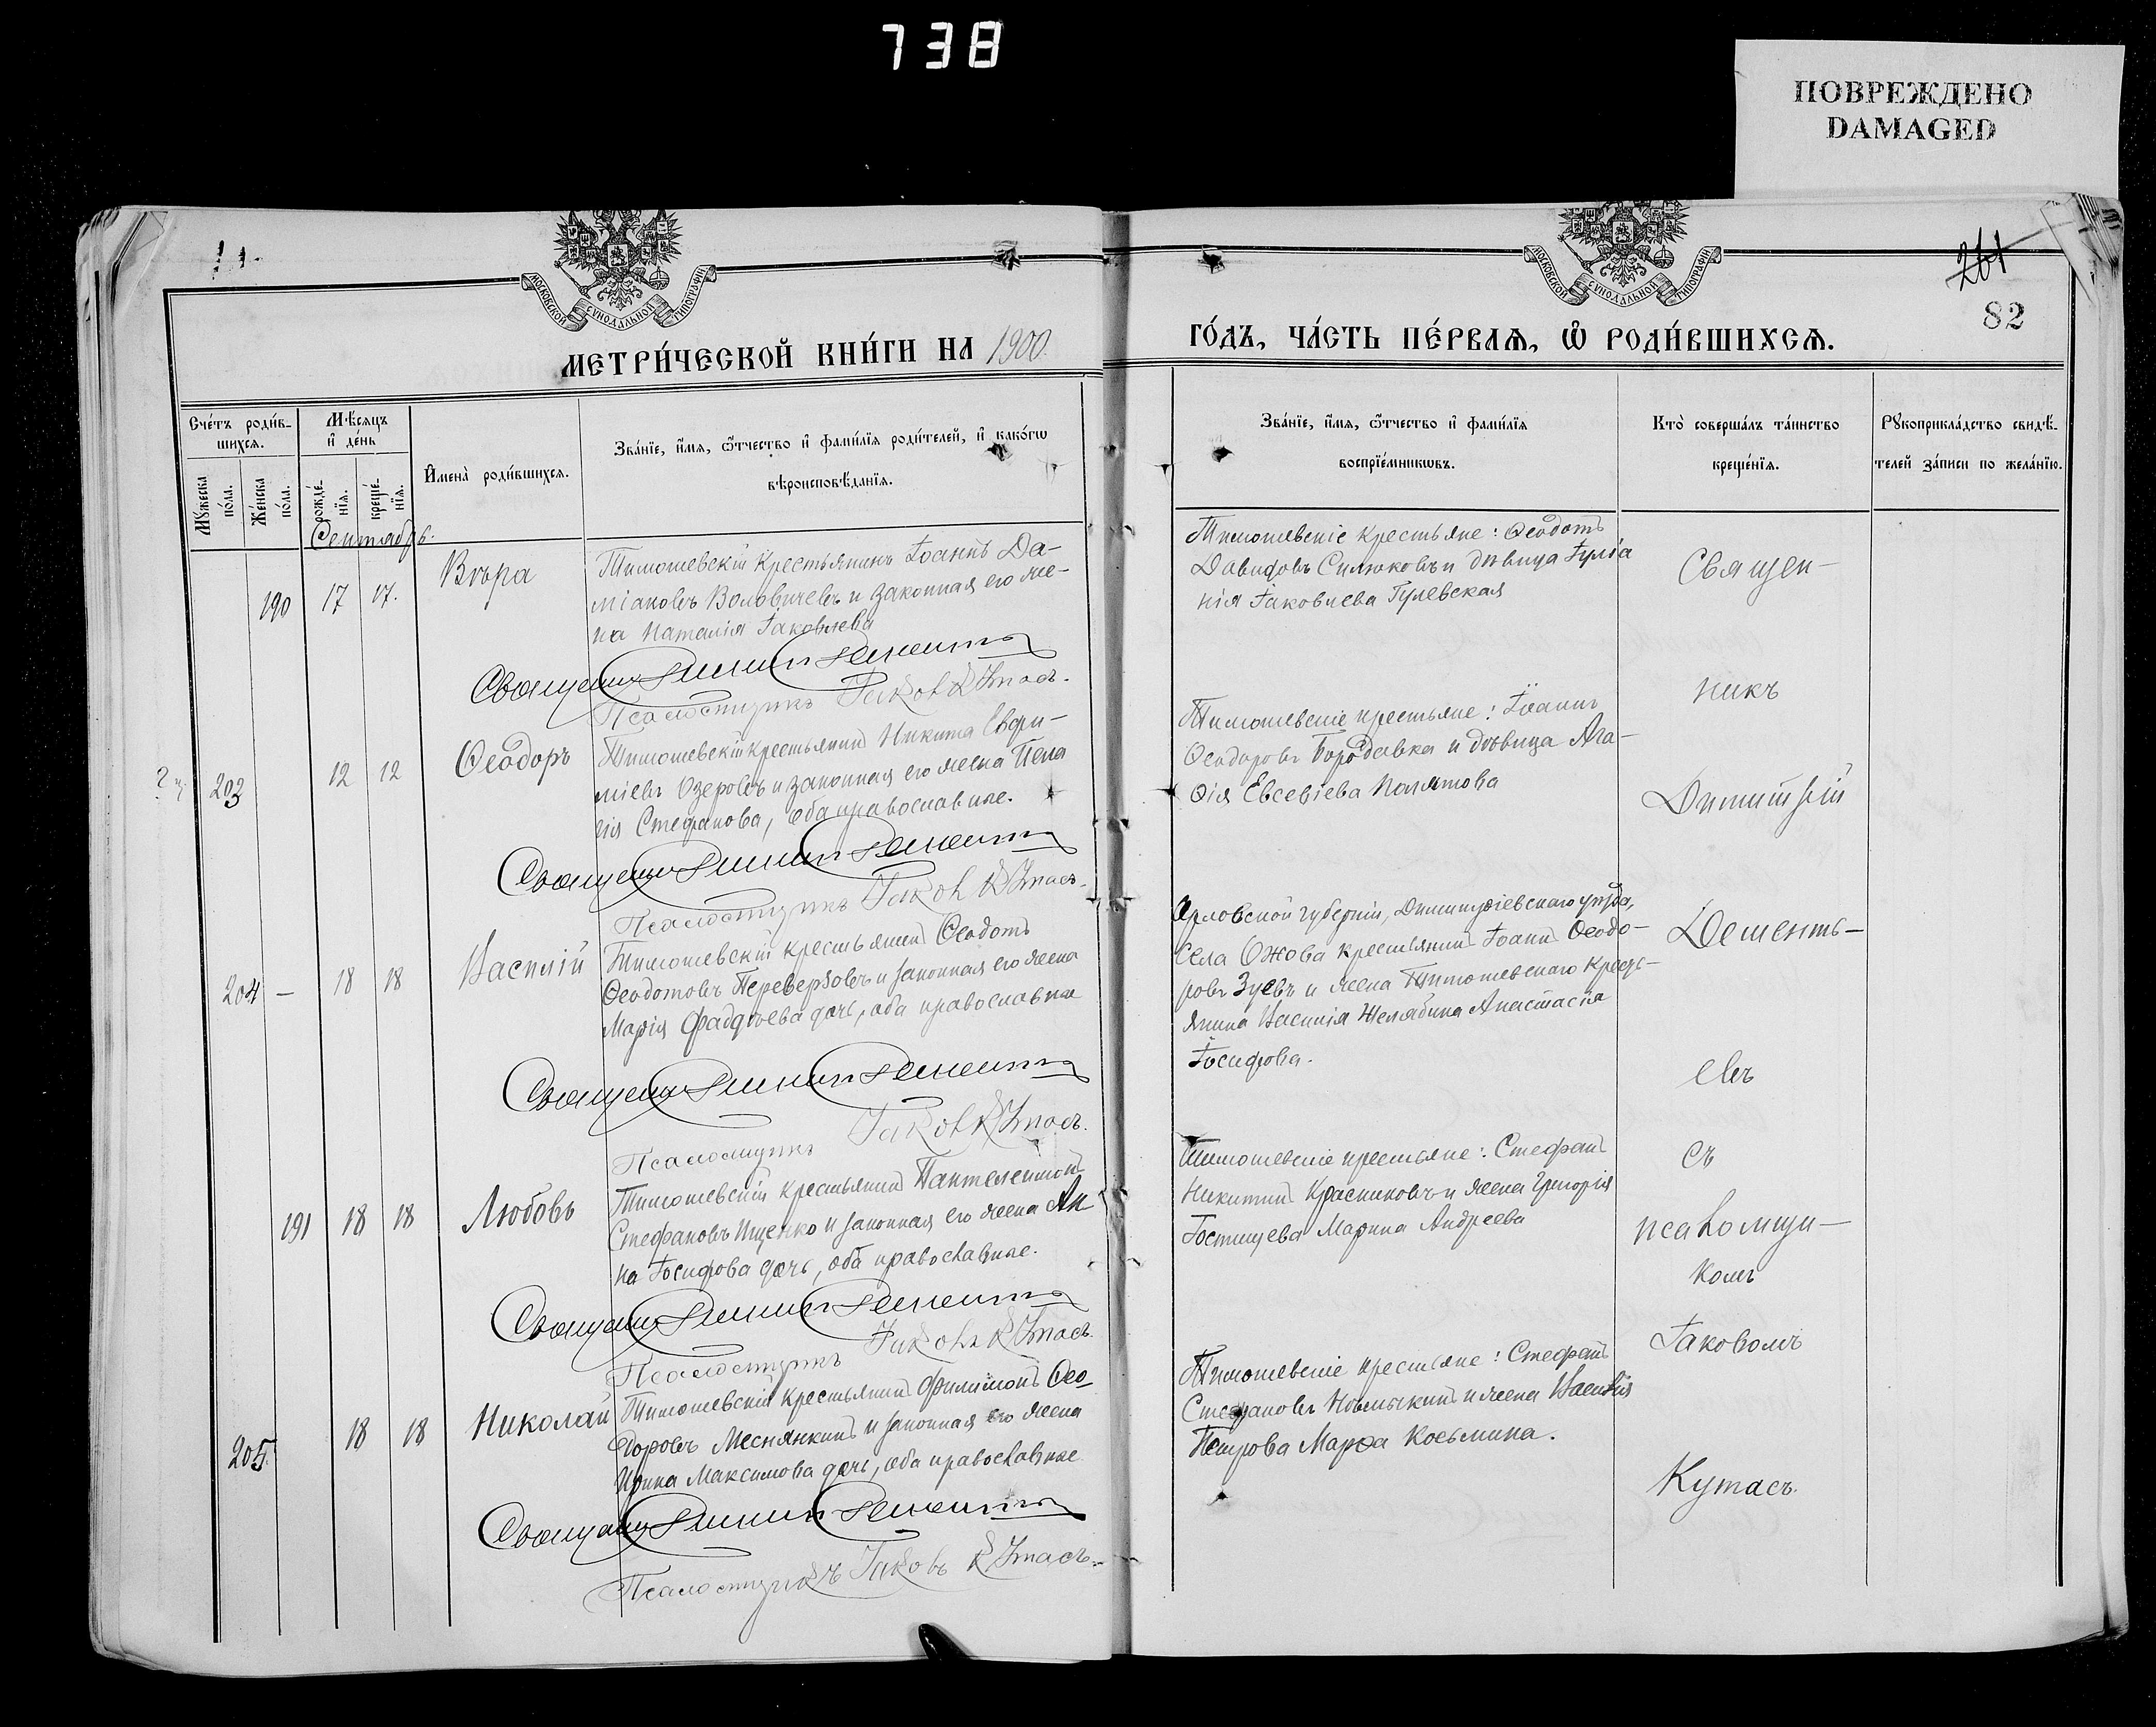 738
ПОВРЕЖДЕНО
DAMAGED
МОСКОВСКОЙ СУНОДАЛЬНОЙ ТИПОГРАФІИ
МОСКОВСКОЙ СУНОДАЛЬНОЙ ТИПОГРАФІИ
261
82
МЕТРИ́ЧЕСКОЙ КНИ́ГИ НА 1900.
ГО́ДЪ, ЧА́СТЬ ПЕ́РВАѦ, Ѡ҆ РОДИ́ВШИХСѦ.
Сче́тъ роди́в-
шихсѧ.
Мꙋ́жеска
по́ла.
Же́нска
по́ла.
Мѣ́сѧцъ
и҆ де́нь
рожде́-
нїѧ.
креще́-
нїѧ.
И҆мена̀ роди́вшихсѧ.
Зва́нїе, и҆́мѧ, ѻ҆́тчество и҆ фами́лїѧ роди́телей, и҆ како́гѡ
вѣроисповѣ́данїѧ.
Зва́нїе, и҆́мѧ, ѻ҆́тчество и҆ фами́лїѧ
воспрїе́мникѡвъ.
Кто̀ соверша́лъ та́инство
креще́нїѧ.
Рꙋкоприкла́дство свидѣ́-
телей за́писи по жела́нїю.
Сентябрь.
190 17 17. Вѣра
Тимошевскій крестьянинъ Іоаннъ Да-
міановъ Воловичевъ и законная его же-
на Наталія Іаковлева
Священникъ
Псаломщикъ Іаковъ Кутасъ.
Тимошевскіе крестьяне: Ѳеодотъ
Давидовъ Силюковъ и дѣвица Іуліа
нія Іаковлева Гулевская
203 12 12 Ѳеодоръ
Тимошевскій крестьянинъ Никита Евфи-
міевъ Озеровъ и законная его жена Пела
гія Стефанова, оба православные.
Священникъ
Псаломщикъ Іаковъ Кутасъ.
Тимошевскіе крестьяне: Іоаннъ
Ѳеодоровъ Бородавка и дѣвица Ага-
ѳія Евсевіева
204 — 18 18 Василій
Тимошевскій крестьянинъ Ѳеодотъ
Ѳеодотовъ Переверзовъ и законная его жена
Марія Фаддѣева дочь, оба православные
Священникъ
Псаломщикъ Іаковъ Кутасъ.
Орловской губерніи, Димитріевскаго уѣзда,
села крестьянинъ Іоаннъ Ѳеодо-
ровъ Зуевъ и жена Тимошевскаго кресть-
янина Василія Желябина Анастасія
Іосифова.
191 18 18 Любовь
Тимошевскій крестьянинъ Пантелеимонъ
Стефановъ Ищенко и законная его жена Ан
на Іосифова дочь, оба православные.
Священникъ
Псаломщикъ Іаковъ Кутасъ.
Тимошевскіе крестьяне: Стефанъ
Никитинъ Красниковъ и жена Григорія
Гостищева Марина Андреева
205. 18 18 Николай
Тимошевскій крестьянинъ Филимонъ Ѳео-
доровъ Меснянкинъ и законная его жена
Ирина Максимова дочь, оба православные
Священникъ
Псаломщикъ Іаковъ Кутасъ.
Тимошевскіе крестьяне: Стефанъ
Стефановъ и жена Василія
Петрова Марѳа Косьмина.
Священ-
никъ
Димитрій
Дементь-
евъ
съ
псаломщи-
комъ
Іаковомъ
Кутасъ.